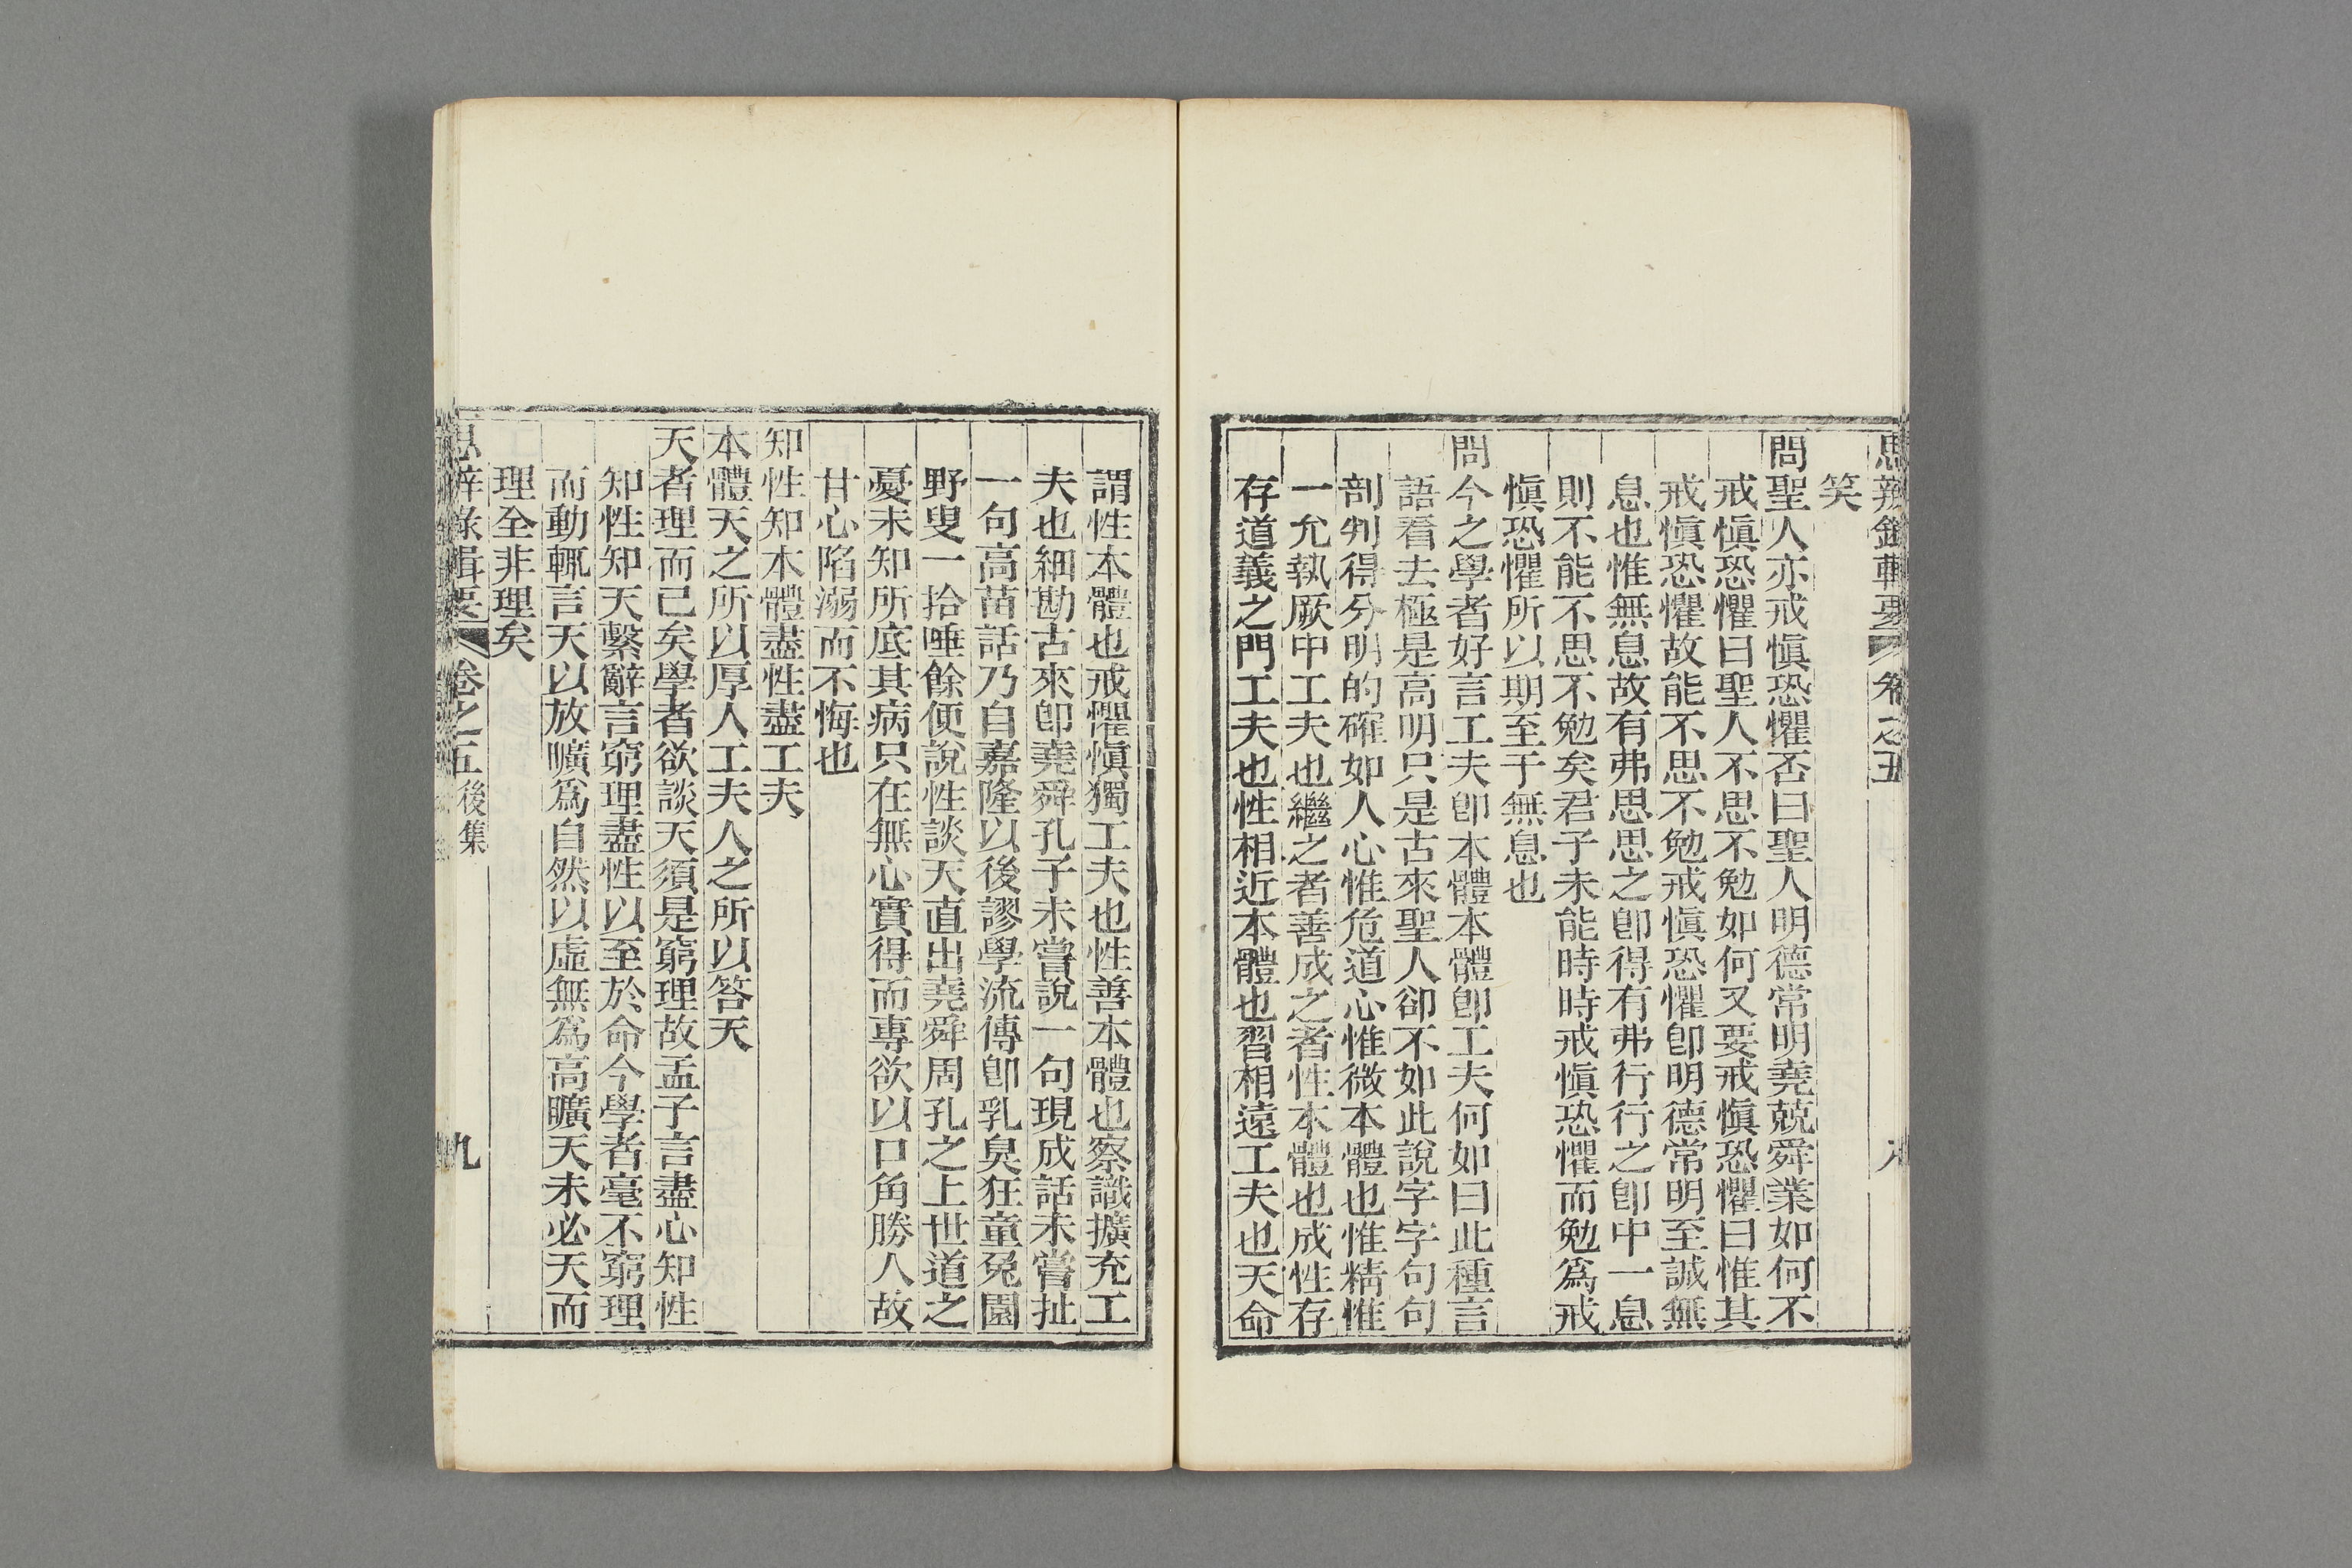 思辨錄輯要 卷之五 八
笑
問聖人亦戒愼恐懼否曰聖人明德常明堯兢舜業如何不
戒愼恐懼曰聖人不思不勉如何又要戒愼恐懼曰惟其
戒愼恐懼故能不思不勉戒愼恐懼卽明德常明至誠無
息也惟無息故有弗思思之卽得有弗行行之卽中一息
則不能不思不勉矣君子未能時時戒愼恐懼而勉爲戒
愼恐懼所以期至于無息也
問今之學者好言工夫卽本體本體卽工夫何如曰此種言
語看去極是高明只是古來聖人卻不如此說字字句句
剖判得分明的確如人心惟危道心惟微本體也惟精惟
一允執厥中工夫也繼之者善成之者性本體也成性存
存道義之門工夫也性相近本體也習相遠工夫也天命
謂性本體也戒懼愼獨工夫也性善本體也察識擴充工
夫也細勘古來卽堯舜孔子未嘗說一句現成話未嘗扯
一句高苗話乃自嘉隆以後謬學流傳卽乳臭狂童兔園
野叟一拾唾餘便說性談天直出堯舜周孔之上世道之
憂未知所底其病只在無心實得而專欲以口角勝人故
甘心陷溺而不悔也
知性知本體盡性盡工夫
本體天之所以厚人工夫人之所以答天
天者理而已矣學者欲談天須是窮理故孟子言盡心知性
知性知天繫辭言窮理盡性以至於命今學者毫不窮理
而動輒言天以放曠爲自然以虛無爲高曠天未必天而
理全非理矣
思辨錄輯要 卷之五後集 九